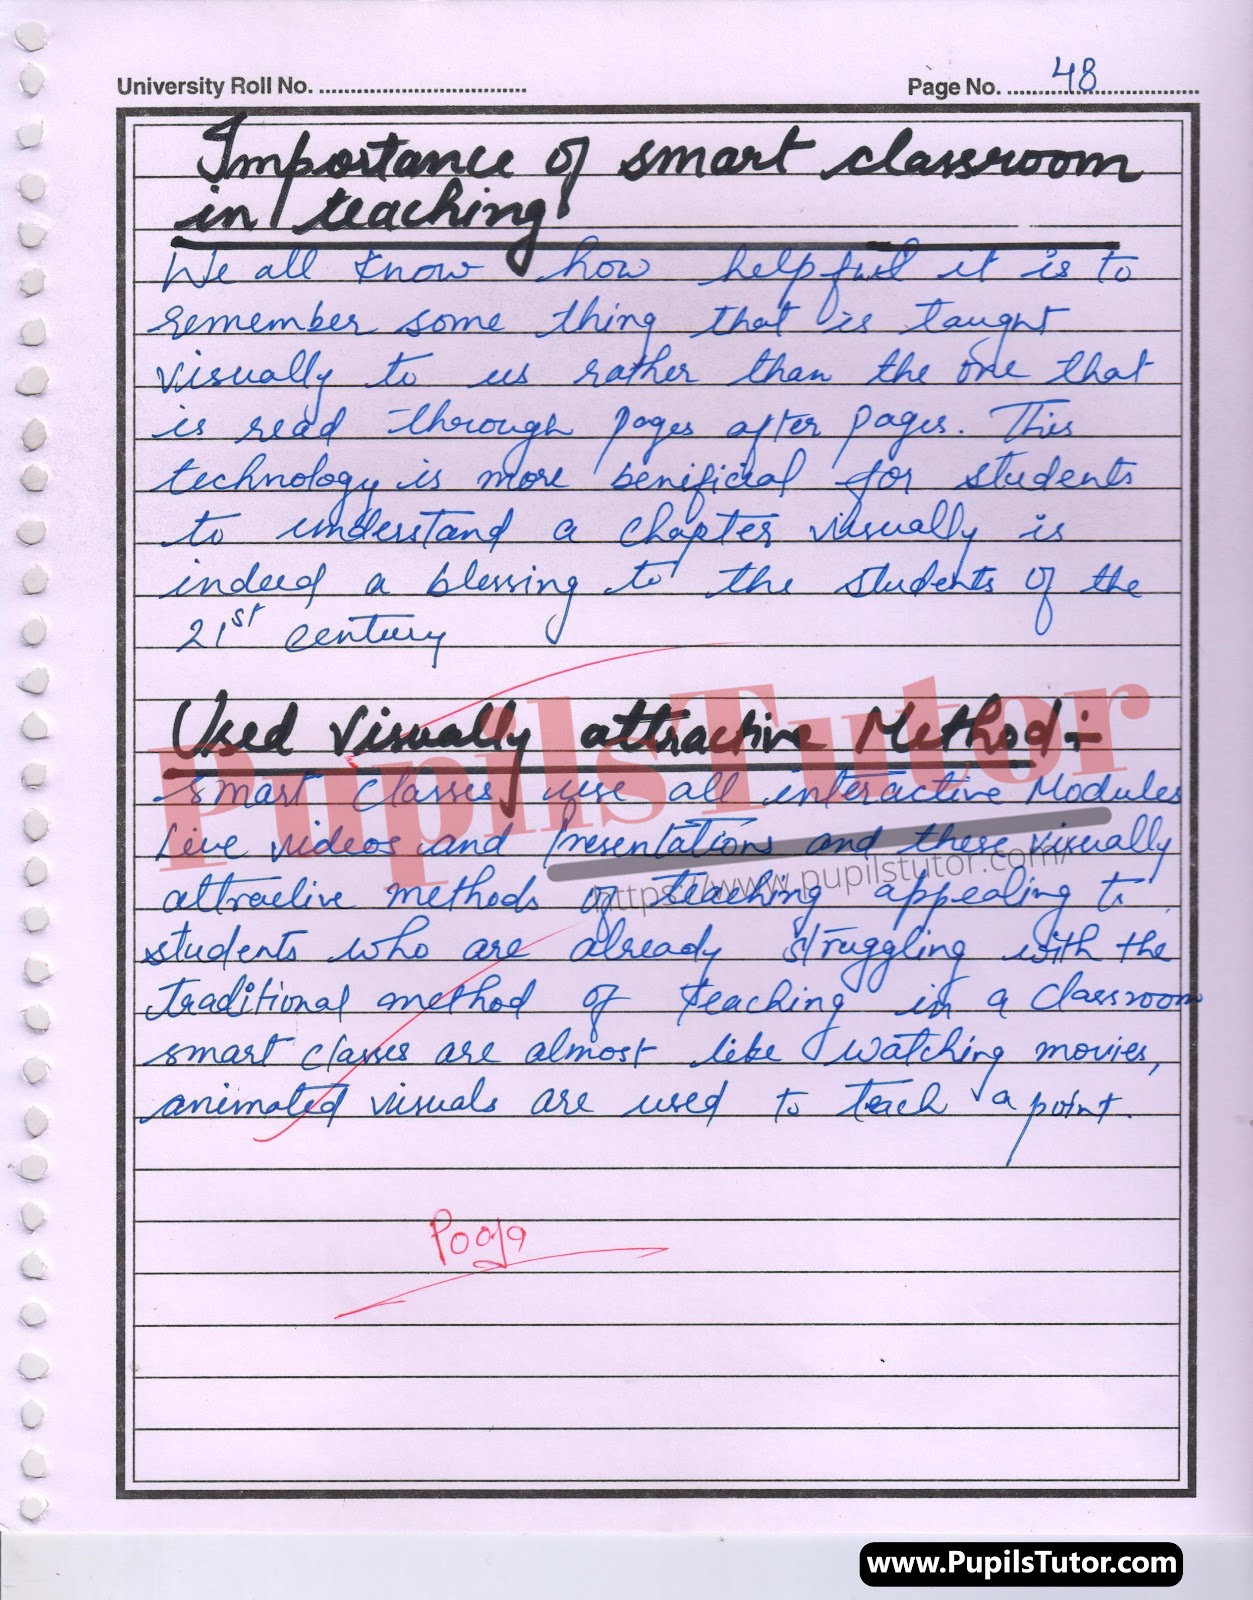 University Roll No. ................................. Page No. ....48....
Importance of smart classroom
in teaching
We all know how helpful it is to
remember some thing that is taught
visually to us rather than the one that
is read through pages after pages. This
technology is more benificial for students
to understand a chapter visually is
indeed a blessing to the students of the
21st century
Used Visually attractive Method :-
smart classes use all interactive Modules
Live videos and Presentations and these visually
attractive methods of teaching appealing to
students who are already struggling with the
traditional method of teaching in a classroom
smart classes are almost like watching movies,
animated visuals are used to teach a point.
PupilsTutor
https://www.pupilstutor.com/
Pooja
www.PupilsTutor.com